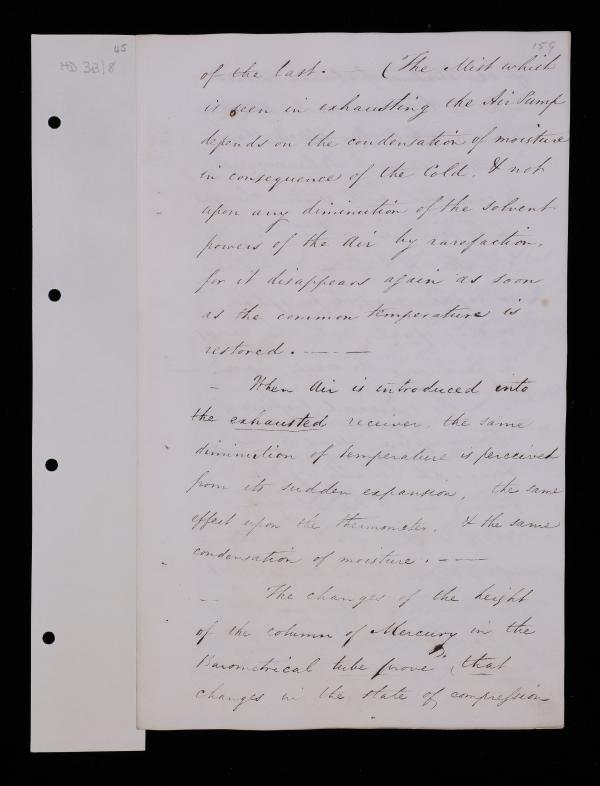 45
HD 3B/8
159
of the last. — (The Mist which
is seen in exhausting the Air Pump
depends on the condensation of moisture
in consequence of the Cold, & not
upon any diminution of the solvent
powers of the Air by rarefaction,
for it disappears again as soon
as the common temperature is
restored. — — —
— When Air is introduced into
the exhausted receiver, the same
diminution of temperature is perceived
from its sudden expansion, the same
effect upon the thermometer, & the same
condensation of moisture. — —
— The changes of the height
of the column of Mercury in the
Barometrical tube prove, that
changes in the state of compression